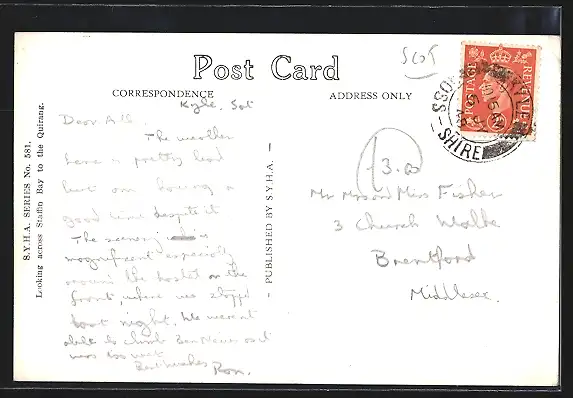 Post Card
CORRESPONDENCE
ADDRESS ONLY
Scot
S.Y.H.A. SERIES No. 581.
Looking across Staffin Bay to the Quirang.
PUBLISHED BY S.Y.H.A.
POSTAGE REVENUE
SHIRE
Kyle, Sat
Dear All
The weather
here is pretty bad
but am having a
good time despite it
The scenery is
magnificent especially
round the hostel on the
front, where we stopped
last night. We weren't
able to climb Ben Nevis as it
was too wet
Best wishes
Ron.
3.00
Mr Mrs and Miss Fisher
3 Church Walk
Brentford
Middlesex.